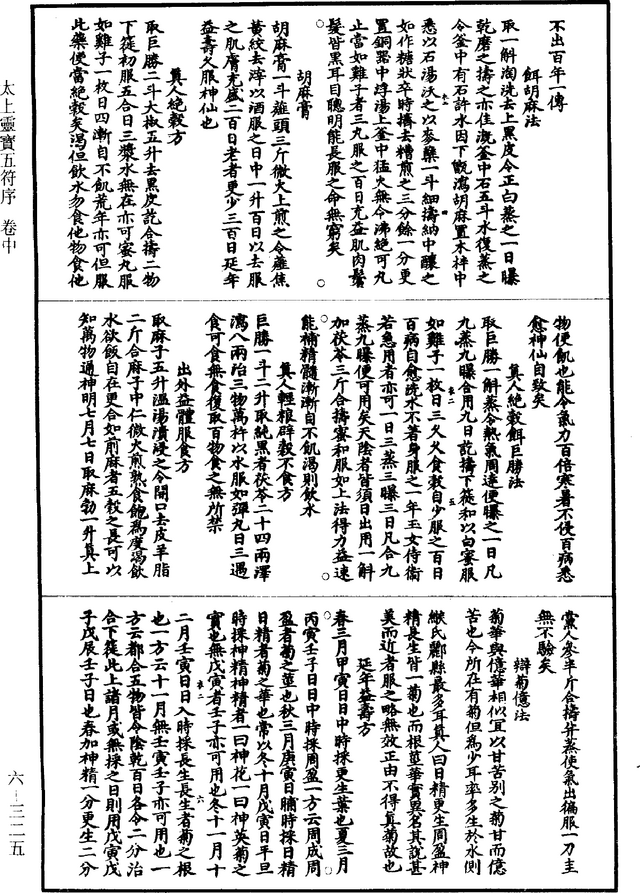 不出百年一傳
餌胡麻法
取一斛淘洗去上黑皮令正白蒸之一日曝
乾磨之擣之亦佳溉釜中石五斗水復蒸之
令釜中有石許水因下甑瀉胡麻置木柈中
悉以石湯沃之以參糵一斗細擣納中釀之
如作糖狀卒時擣去糟煎之三分餘一分更
置銅器中浮湯上釜中猛火無令沸絕可丸
止當如雞子者三丸服之百日充益肌肉鬢
髮皆黑耳目聰明能長服之命無窮矣
胡麻膏
胡麻膏一斗薤頭三斤微火上煎之令薤焦
黃絞去滓以酒服之日中一升百日以去服
之肌膚充盛二百日老者更少三百日延年
益壽久服神仙也
真人絕穀方
取巨勝二斗大椒五升去黑皮訖合擣二物
下簁初服五合日三漿水無在亦可蜜丸服
如雞子一枚日四漸自不飢荒年亦可但服
此藥便當絕穀矣渴但飲水勿食他物食他
物便飢也能令氣力百倍寒暑不侵百病悉
愈神仙自致矣
真人絕穀餌巨勝法
取巨勝一斛蒸令熱氣周達便曝之一日凡
九蒸九曝合用九日訖擣下簁和以白蜜服
如雞子一枚日三久久食穀自少服之百日
百病自愈洗水不著身服之一年玉女侍衛
若急用者亦可一日三蒸三曝三日凡合九
蒸九曝便可用矣天陰者皆須日出用一斛
加茯苓三斤合擣蜜和服如上法得力益速
能補精髓漸漸自不飢渴則飲水
真人輕粮辟穀不食方
巨勝一斗二升取純黑者茯苓二十四兩澤
瀉八兩治三物萬杵以水服如彈丸日三遇
食可食無食復取百物食之無所禁
出外益體服食方
取麻子五升溫湯漬浸之令開口去皮羊脂
二斤合麻子中仁微火煎熟食飽為度渴飲
水欲飯自在更合如前麻者五穀之長可以
知萬物通神明七月七日取麻勃一升真上
黨人參半斤合擣并蒸使氣出徧服一刀圭
無不驗矣
辯菊億法
菊華與億華相似冝以甘苦別之菊甘而億
苦也今所在有菊但為少耳率多生於水側
緱氏酈縣最多耳真人曰日精更生周盈神
精長生皆一菊也而根莖華實異名其說甚
美而近者服之略無效正由不得真菊故也
延年益壽方
春三月甲寅日日中時採更生葉也夏三月
丙寅壬子日日中時採周盈一方云周成周
盈者菊之莖也秋三月庚寅日晡時採日精
日精者菊之華也常以冬十月戊寅日平旦
時採神精神精者一曰神花一曰神英菊之
實也無戊寅者壬子亦可用也冬十一月十
二月壬寅日日入時採長生長生者菊之根
也一方云十一月無壬寅壬子亦可用也一
方云都合五物皆令陰乾百日各令二分治
合下簁此上諸月或無採之日則用戊寅戊
子戊辰壬子日也春加神精一分更生二分
太上靈寶五符序 卷中
六-三二五